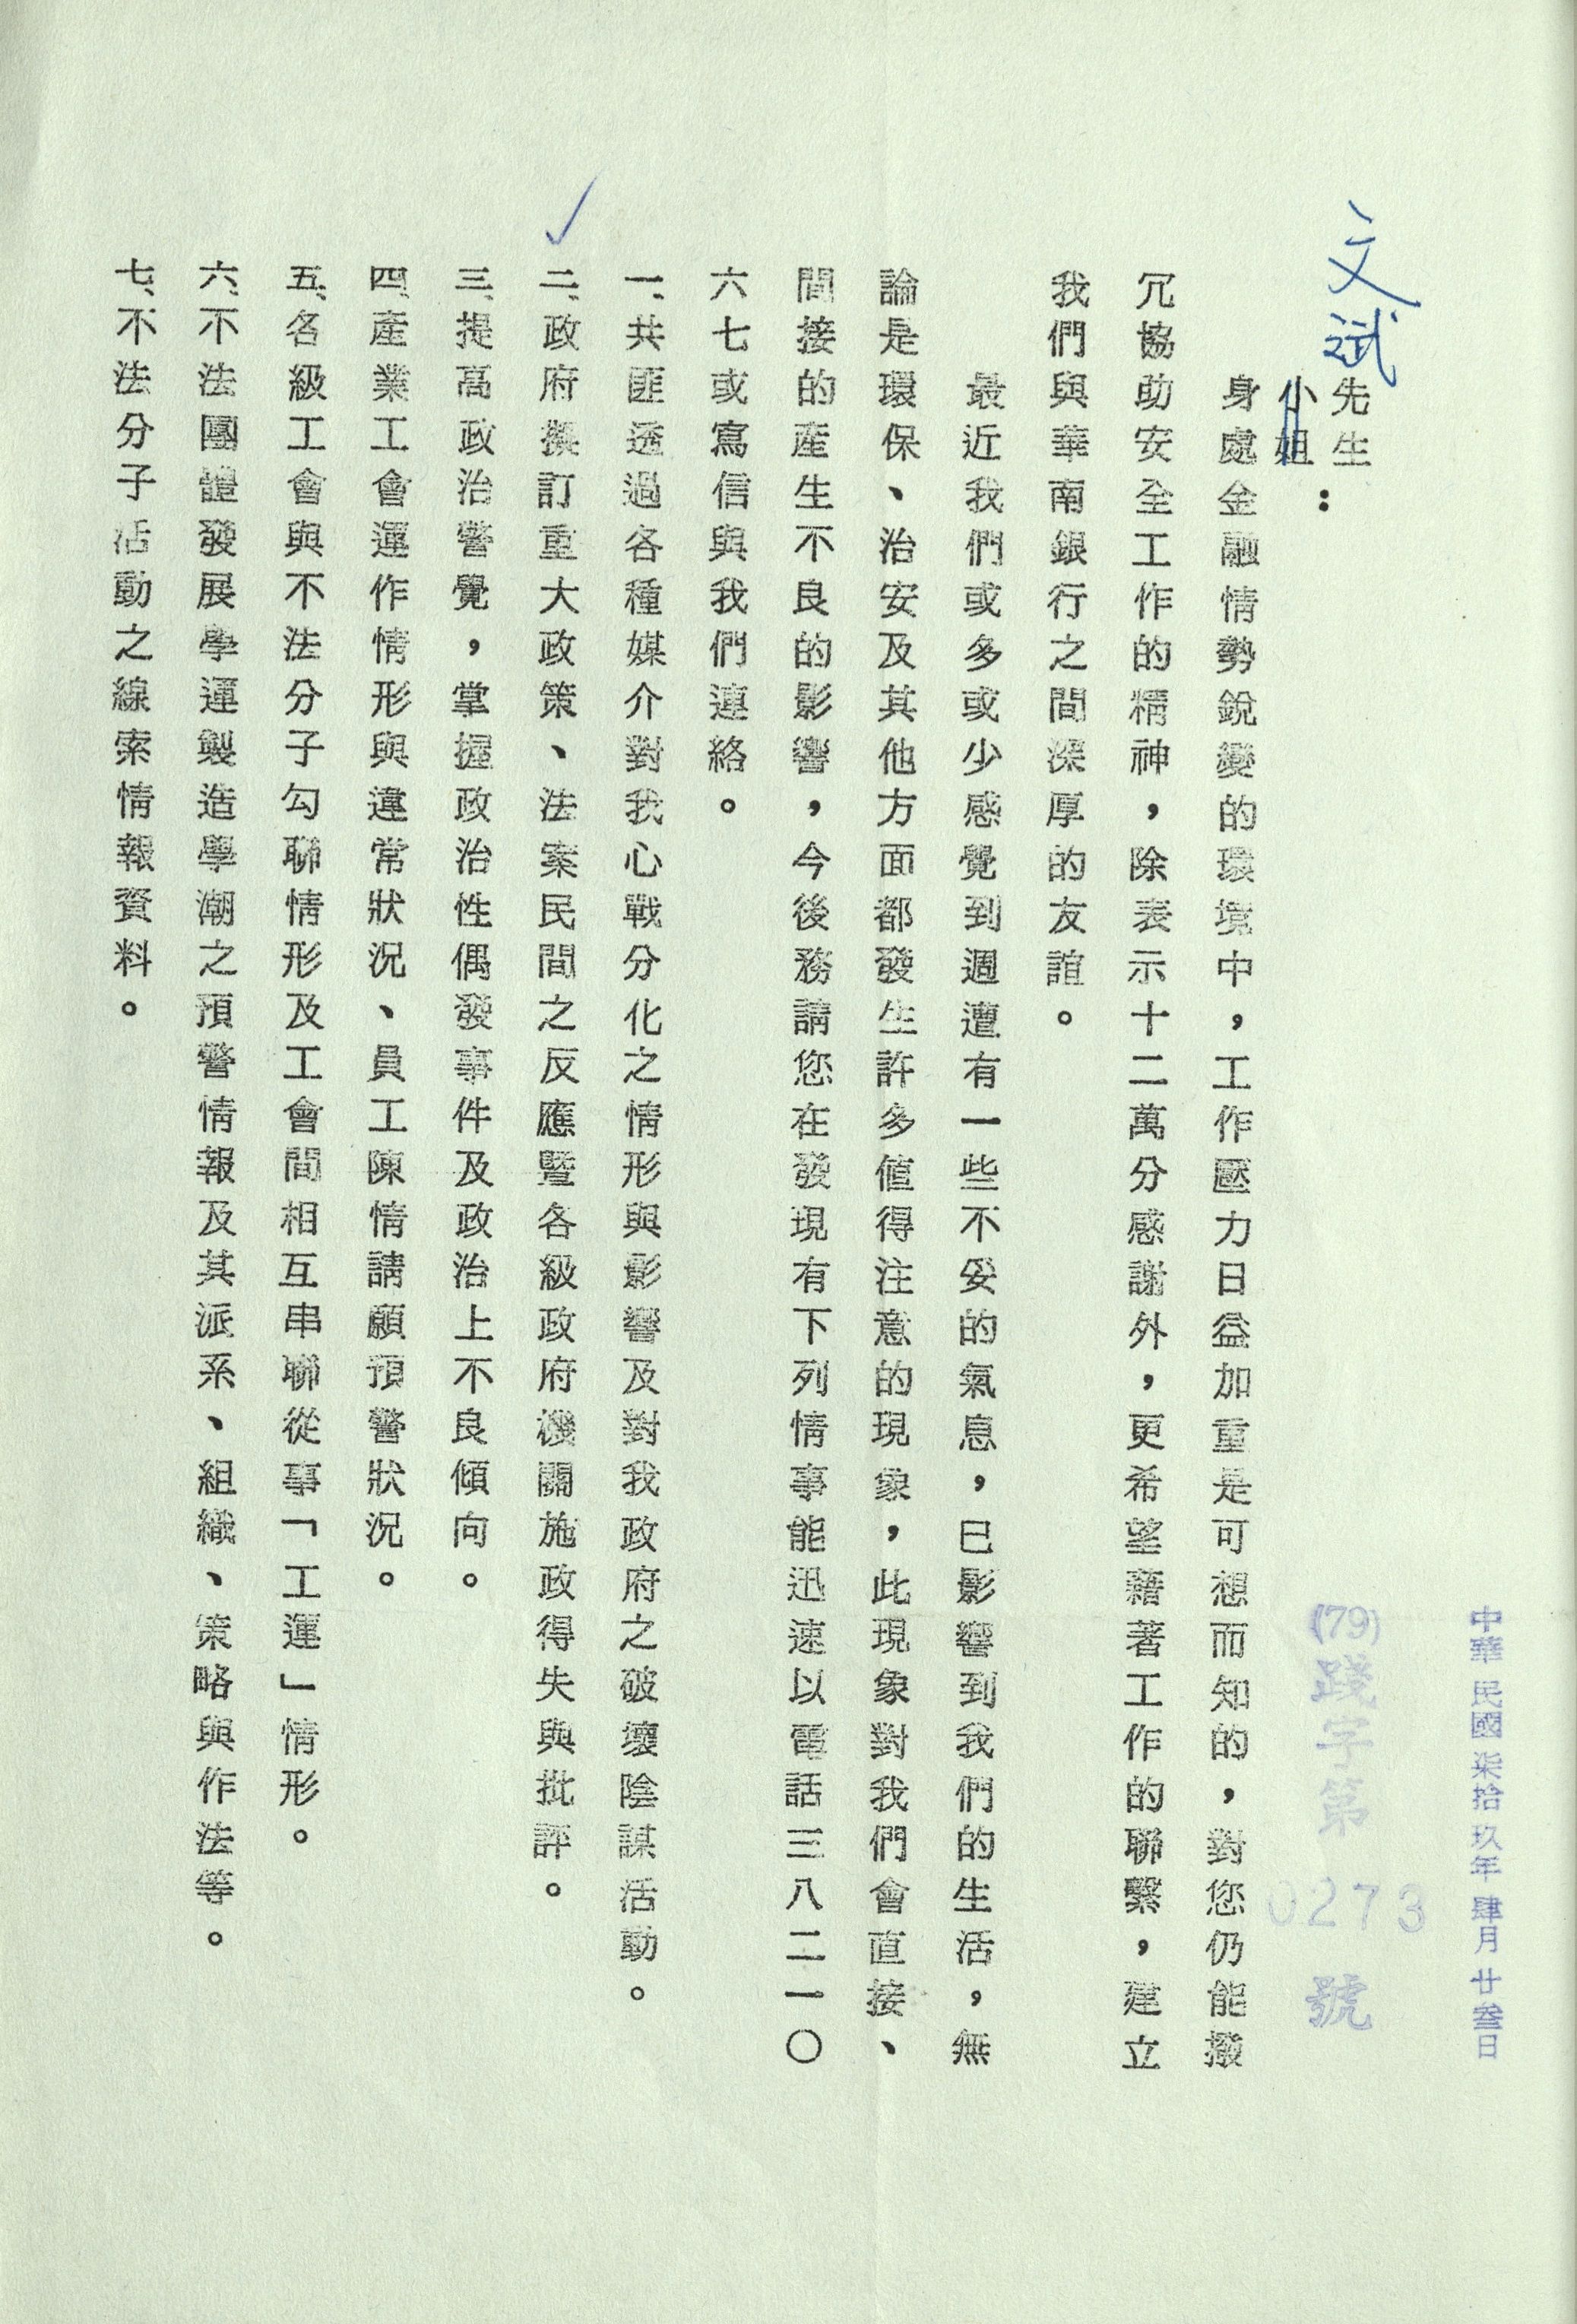 中華民國柒拾玖年肆月廿叁日
(79)踐字第0273號
文斌先生
小姐：
身處金融情勢銳變的環境中，工作壓力日益加重是可想而知的，對您仍能撥
冗協助安全工作的精神，除表示十二萬分感謝外，更希望藉著工作的聯繫，建立
我們與華南銀行之間深厚的友誼。
最近我們或多或少感覺到週遭有一些不妥的氣息，已影響到我們的生活，無
論是環保、治安及其他方面都發生許多值得注意的現象，此現象對我們會直接、
間接的產生不良的影響，今後務請您在發現有下列情事能迅速以電話三八二一〇
六七或寫信與我們連絡。
一、共匪透過各種媒介對我心戰分化之情形與影響及對我政府之破壞陰謀活動。
二、政府擬訂重大政策、法案民間之反應暨各級政府機關施政得失與批評。
三、提高政治警覺，掌握政治性偶發事件及政治上不良傾向。
四、產業工會運作情形與違常狀況、員工陳情請願預警狀況。
五、各級工會與不法分子勾聯情形及工會間相互串聯從事「工運」情形。
六、不法團體發展學運製造學潮之預警情報及其派系、組織、策略與作法等。
七、不法分子活動之線索情報資料。